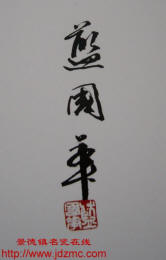 藍國華
景德镇名瓷在线
http://www.jdzmc.com